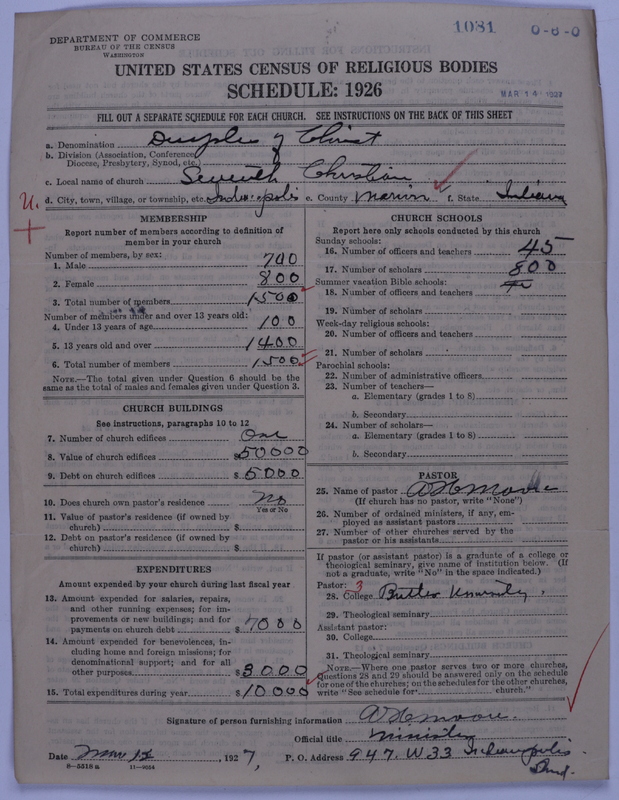 1081 0-8-0
DEPARTMENT OF COMMERCE
BUREAU OF THE CENSUS
WASHINGTON
UNITED STATES CENSUS OF RELIGIOUS BODIES
SCHEDULE: 1926
MAR 14 1927
FILL OUT A SEPARATE SCHEDULE FOR EACH CHURCH. SEE INSTRUCTIONS ON THE BACK OF THIS SHEET
a. Denomination Disciples of Christ
b. Division (Association, Conference
Diocese, Presbytery, Synod, etc.)
c. Local name of church Seventh Christian
d. City, town, village, or township, etc. Indianapolis e. County Marion f. State Indiana
U.
MEMBERSHIP
Report number of members according to definition of
member in your church
Number of members, by sex:
1. Male 700
2. Female 800
3. Total number of members 1500
Number of members under and over 13 years old:
4. Under 13 years of age 100
5. 13 years old and over 1400
6. Total number of members 1500
NOTE.—The total given under Question 6 should be the
same as the total of males and females given under Question 3.
CHURCH BUILDINGS
See instructions, paragraphs 10 to 12
7. Number of church edifices One
8. Value of church edifices $50000
9. Debt on church edifices $5000
10. Does church own pastor's residence No
Yes or No
11. Value of pastor's residence (if owned by
church) $
12. Debt on pastor's residence (if owned by
church) $
EXPENDITURES
Amount expended by your church during last fiscal year
13. Amount expended for salaries, repairs,
and other running expenses; for im-
provements or new buildings; and for
payments on church debt $7000
14. Amount expended for benevolences, in-
cluding home and foreign missions; for
denominational support; and for all
other purposes $3000
15. Total expenditures during year $10000
CHURCH SCHOOLS
Report here only schools conducted by this church
Sunday schools:
16. Number of officers and teachers 45
17. Number of scholars 800
Summer vacation Bible schools:
18. Number of officers and teachers
19. Number of scholars
Week-day religious schools:
20. Number of officers and teachers
21. Number of scholars
Parochial schools:
22. Number of administrative officers
23. Number of teachers—
a. Elementary (grades 1 to 8)
b. Secondary
24. Number of scholars—
a. Elementary (grades 1 to 8)
b. Secondary
PASTOR
25. Name of pastor A H Moore
(If church has no pastor, write "None")
26. Number of ordained ministers, if any, em-
ployed as assistant pastors
27. Number of other churches served by the
pastor or his assistants
If pastor (or assistant pastor) is a graduate of a college or
theological seminary, give name of institution below. (If
not a graduate, write "No" in the space indicated.)
Pastor: 3
28. College Butler University.
29. Theological seminary
Assistant pastor:
30. College
31. Theological seminary
NOTE.—Where one pastor serves two or more churches,
Questions 28 and 29 should be answered only on the schedule
for one of the churches; on the schedules for the other churches,
write "See schedule for church."
Signature of person furnishing information A H Moore.
Official title Minister
Date , 1927, P. O. Address 947. W 33 Indianapolis
Ind.
8—5518 a 11—9054